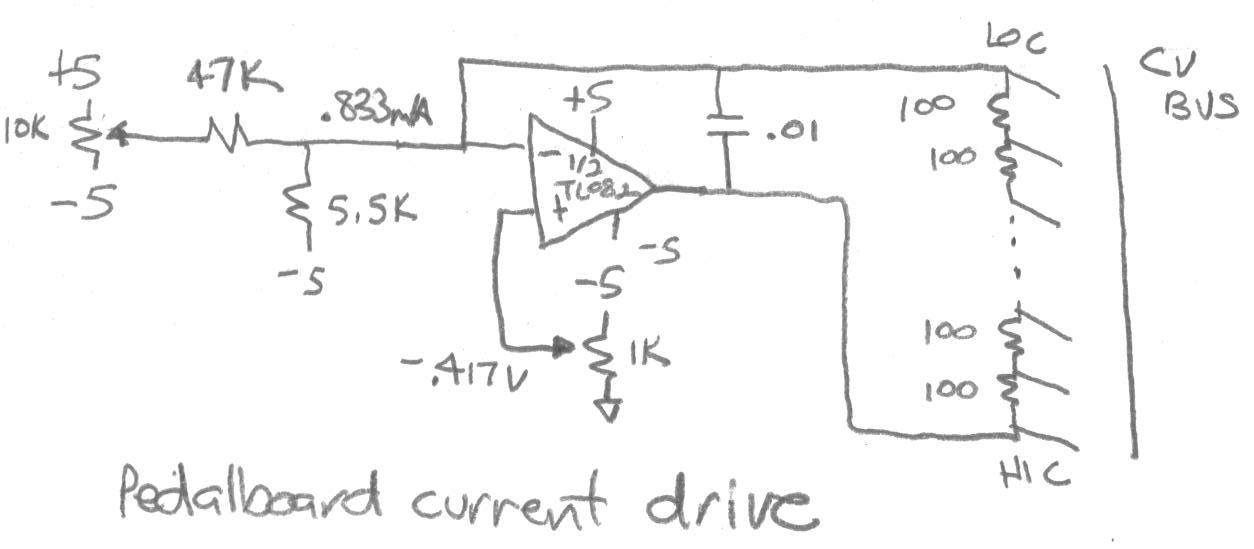 +5
47K
10K
.833mA
-5
5.5K
-5
+5
-
1/2
TL082
+
-5
-5
1K
-.417V
.01
LO C
100
100
100
100
HI C
CV
BUS
Pedalboard current drive